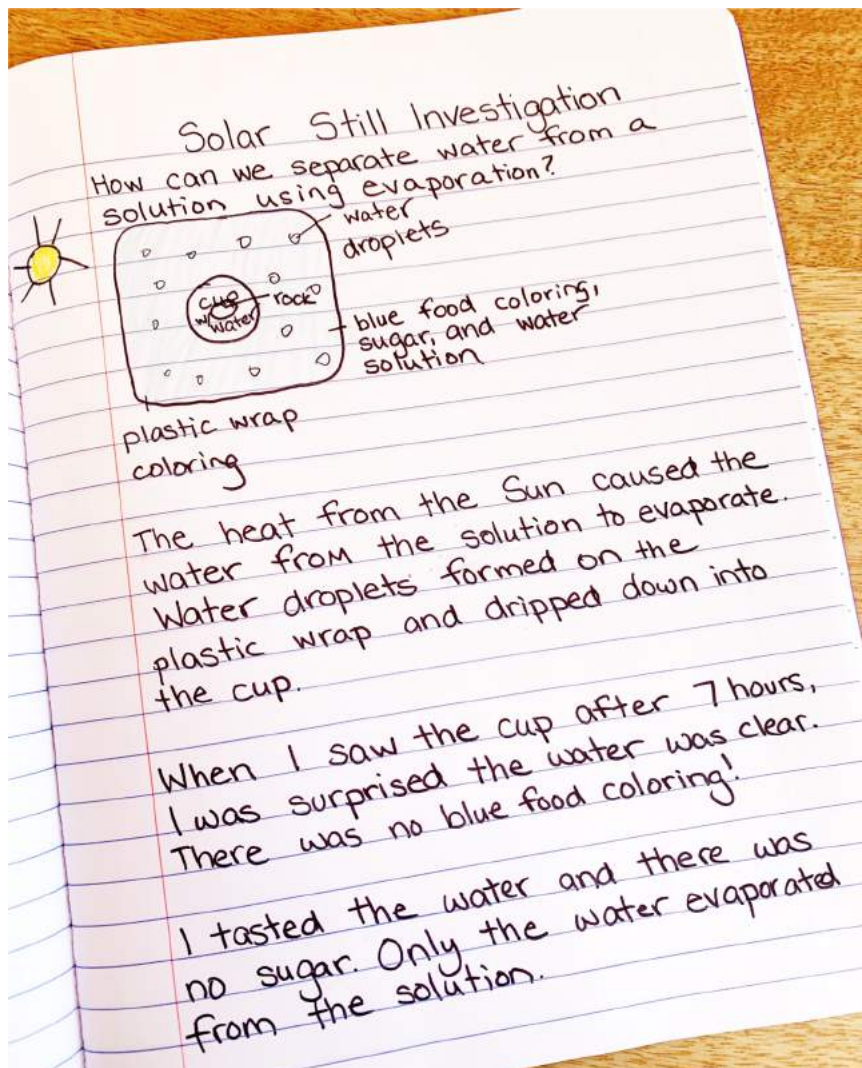 Solar Still Investigation
How can we separate water from a
solution using evaporation?
water
droplets
cup
w/
water
rock
blue food coloring,
sugar, and water
solution
plastic wrap
coloring
The heat from the Sun caused the
water from the solution to evaporate.
Water droplets formed on the
plastic wrap and dripped down into
the cup.
When I saw the cup after 7 hours,
I was surprised the water was clear.
There was no blue food coloring!
I tasted the water and there was
no sugar. Only the water evaporated
from the solution.